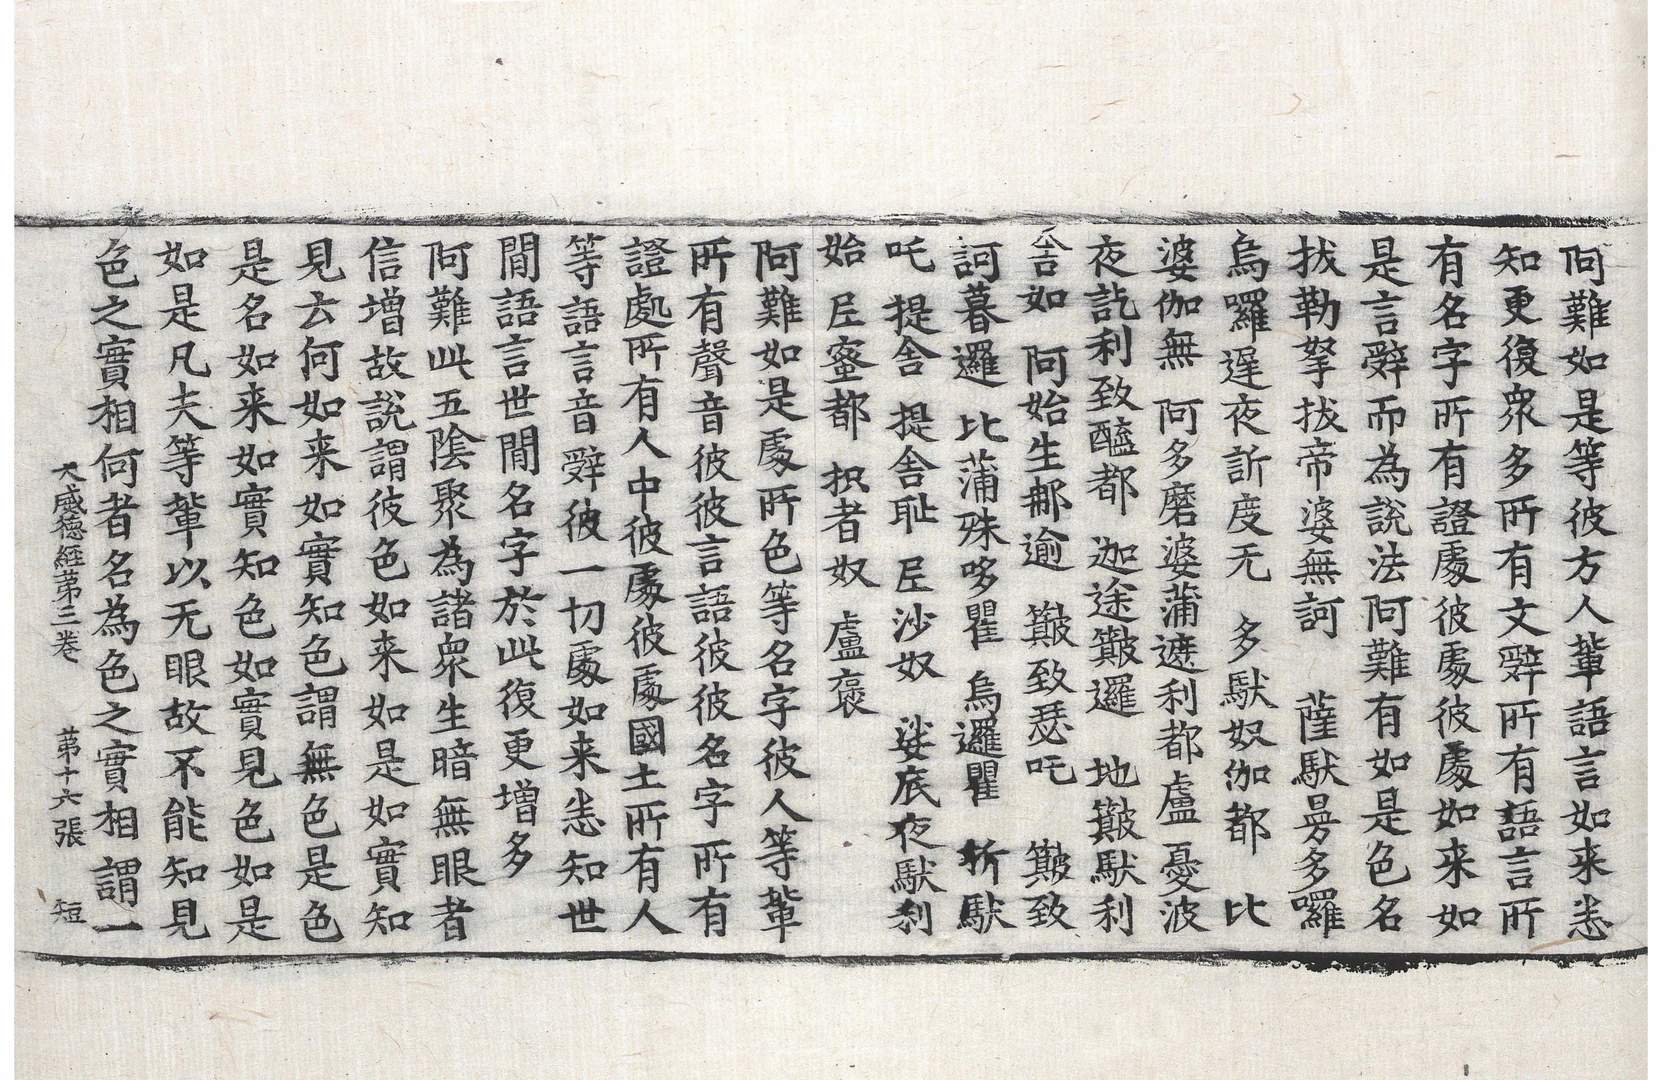 阿難如是等彼方人輩語言如来悉
知更復衆多所有文辤所有語言所
有名字所有證處彼處彼處如来如
是言辤而為說法阿難有如是色名
拔勒拏拔帝婆無訶 薩馱曷多囉
烏囉遅夜訢度无 多馱奴伽都 比
婆伽無 阿多磨婆蒲遮利都盧憂波
夜訖利致醯都 迦途簸邏 地簸馱利
舍如 阿始生那逾 簸致瑟吒 簸致
訶暮邏 比蒲殊哆瞿 烏邏瞿 折馱
吒 提舍 提舍耻 𡰱沙奴 娑底夜馱利
始 𡰱蜜都 抧者奴 盧褒
阿難如是處所色等名字彼人等輩
所有聲音彼彼言語彼彼名字所有
證處所有人中彼處彼處國土所有人
等語言音辤彼一切處如来悉知世
間語言世間名字於此復更增多
阿難此五陰聚為諸衆生暗無眼者
信增故說謂彼色如来如是如實知
見云何如来如實知色謂無色是色
是名如来如實知色如實見色如是
如是凡夫等輩以无眼故不能知見
色之實相何者名為色之實相謂一
大威德經苐三卷 苐十六張 短